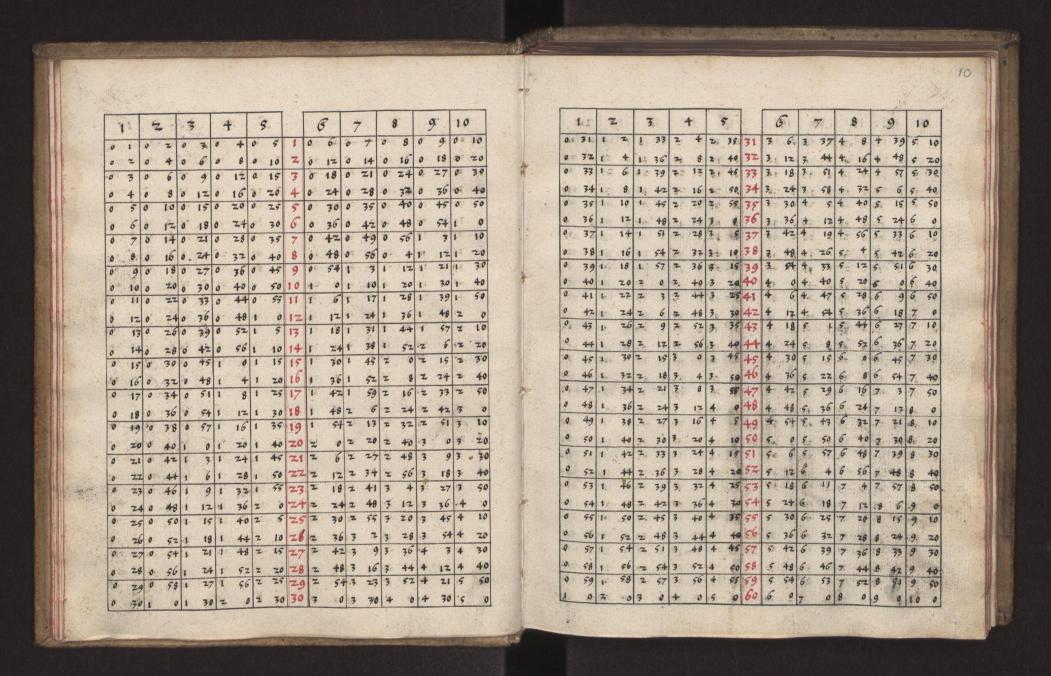 1 2 3 4 5 6 7 8 9 10
0 1 0 2 0 3 0 4 0 5 1 0 6 0 7 0 8 0 9 0 10
0 2 0 4 0 6 0 8 0 10 2 0 12 0 14 0 16 0 18 0 20
0 3 0 6 0 9 0 12 0 15 3 0 18 0 21 0 24 0 27 0 30
0 4 0 8 0 12 0 16 0 20 4 0 24 0 28 0 32 0 36 0 40
0 5 0 10 0 15 0 20 0 25 5 0 30 0 35 0 40 0 45 0 50
0 6 0 12 0 18 0 24 0 30 6 0 36 0 42 0 48 0 54 1 0
0 7 0 14 0 21 0 28 0 35 7 0 42 0 49 0 56 1 3 1 10
0 8 0 16 0 24 0 32 0 40 8 0 48 0 56 0 4 1 12 1 20
0 9 0 18 0 27 0 36 0 45 9 0 54 1 3 1 12 1 21 1 30
0 10 0 20 0 30 0 40 0 50 10 1 0 1 10 1 20 1 30 1 40
0 11 0 22 0 33 0 44 0 55 11 1 6 1 17 1 28 1 39 1 50
0 12 0 24 0 36 0 48 1 0 12 1 12 1 24 1 36 1 48 2 0
0 13 0 26 0 39 0 52 1 5 13 1 18 1 31 1 44 1 57 2 10
0 14 0 28 0 42 0 56 1 10 14 1 24 1 38 1 52 2 6 2 20
0 15 0 30 0 45 1 0 1 15 15 1 30 1 45 2 0 2 15 2 30
0 16 0 32 0 48 1 4 1 20 16 1 36 1 52 2 8 2 24 2 40
0 17 0 34 0 51 1 8 1 25 17 1 42 1 59 2 16 2 33 2 50
0 18 0 36 0 54 1 12 1 30 18 1 48 2 6 2 24 2 42 3 0
0 19 0 38 0 57 1 16 1 35 19 1 54 2 13 2 32 2 51 3 10
0 20 0 40 1 0 1 20 1 40 20 2 0 2 20 2 40 3 0 3 20
0 21 0 42 1 3 1 24 1 45 21 2 6 2 27 2 48 3 9 3 30
0 22 0 44 1 6 1 28 1 50 22 2 12 2 34 2 56 3 18 3 40
0 23 0 46 1 9 1 32 1 55 23 2 18 2 41 3 4 3 27 3 50
0 24 0 48 1 12 1 36 2 0 24 2 24 2 48 3 12 3 36 4 0
0 25 0 50 1 15 1 40 2 5 25 2 30 2 55 3 20 3 45 4 10
0 26 0 52 1 18 1 44 2 10 26 2 36 3 2 3 28 3 54 4 20
0 27 0 54 1 21 1 48 2 15 27 2 42 3 9 3 36 4 3 4 30
0 28 0 56 1 24 1 52 2 20 28 2 48 3 16 3 44 4 12 4 40
0 29 0 58 1 27 1 56 2 25 29 2 54 3 23 3 52 4 21 5 50
0 30 1 0 1 30 2 0 2 30 30 3 0 3 30 4 0 4 30 5 0
10
1 2 3 4 5 6 7 8 9 10
0 31 1 2 1 33 2 4 2 35 31 3 6 3 37 4 8 4 39 5 10
0 32 1 4 1 36 2 8 2 40 32 3 12 3 44 4 16 4 48 5 20
0 33 1 6 1 39 2 12 2 45 33 3 18 3 51 4 24 4 57 5 30
0 34 1 8 1 42 2 16 2 50 34 3 24 3 58 4 32 5 6 5 40
0 35 1 10 1 45 2 20 2 55 35 3 30 4 5 4 40 5 15 5 50
0 36 1 12 1 48 2 24 3 0 36 3 36 4 12 4 48 5 24 6 0
0 37 1 14 1 51 2 28 3 5 37 3 42 4 19 4 56 5 33 6 10
0 38 1 16 1 54 2 32 3 10 38 3 48 4 26 5 4 5 42 6 20
0 39 1 18 1 57 2 36 3 15 39 3 54 4 33 5 12 5 51 6 30
0 40 1 20 2 0 2 40 3 20 40 4 0 4 40 5 20 6 0 6 40
0 41 1 22 2 3 2 44 3 25 41 4 6 4 47 5 28 6 9 6 50
0 42 1 24 2 6 2 48 3 30 42 4 12 4 54 5 36 6 18 7 0
0 43 1 26 2 9 2 52 3 35 43 4 18 5 1 5 44 6 27 7 10
0 44 1 28 2 12 2 56 3 40 44 4 24 5 8 5 52 6 36 7 20
0 45 1 30 2 15 3 0 3 45 45 4 30 5 15 6 0 6 45 7 30
0 46 1 32 2 18 3 4 3 50 46 4 36 5 22 6 8 6 54 7 40
0 47 1 34 2 21 3 8 3 55 47 4 42 5 29 6 16 7 3 7 50
0 48 1 36 2 24 3 12 4 0 48 4 48 5 36 6 24 7 12 8 0
0 49 1 38 2 27 3 16 4 5 49 4 54 5 43 6 32 7 21 8 10
0 50 1 40 2 30 3 20 4 10 50 5 0 5 50 6 40 7 30 8 20
0 51 1 42 2 33 3 24 4 15 51 5 6 5 57 6 48 7 39 8 30
0 52 1 44 2 36 3 28 4 20 52 5 12 6 4 6 56 7 48 8 40
0 53 1 46 2 39 3 32 4 25 53 5 18 6 11 7 4 7 57 8 50
0 54 1 48 2 42 3 36 4 30 54 5 24 6 18 7 12 8 6 9 0
0 55 1 50 2 45 3 40 4 35 55 5 30 6 25 7 20 8 15 9 10
0 56 1 52 2 48 3 44 4 40 56 5 36 6 32 7 28 8 24 9 20
0 57 1 54 2 51 3 48 4 45 57 5 42 6 39 7 36 8 33 9 30
0 58 1 56 2 54 3 52 4 50 58 5 48 6 46 7 44 8 42 9 40
0 59 1 58 2 57 3 56 4 55 59 5 54 6 53 7 52 8 51 9 50
1 0 2 0 3 0 4 0 5 0 60 6 0 7 0 8 0 9 0 10 0